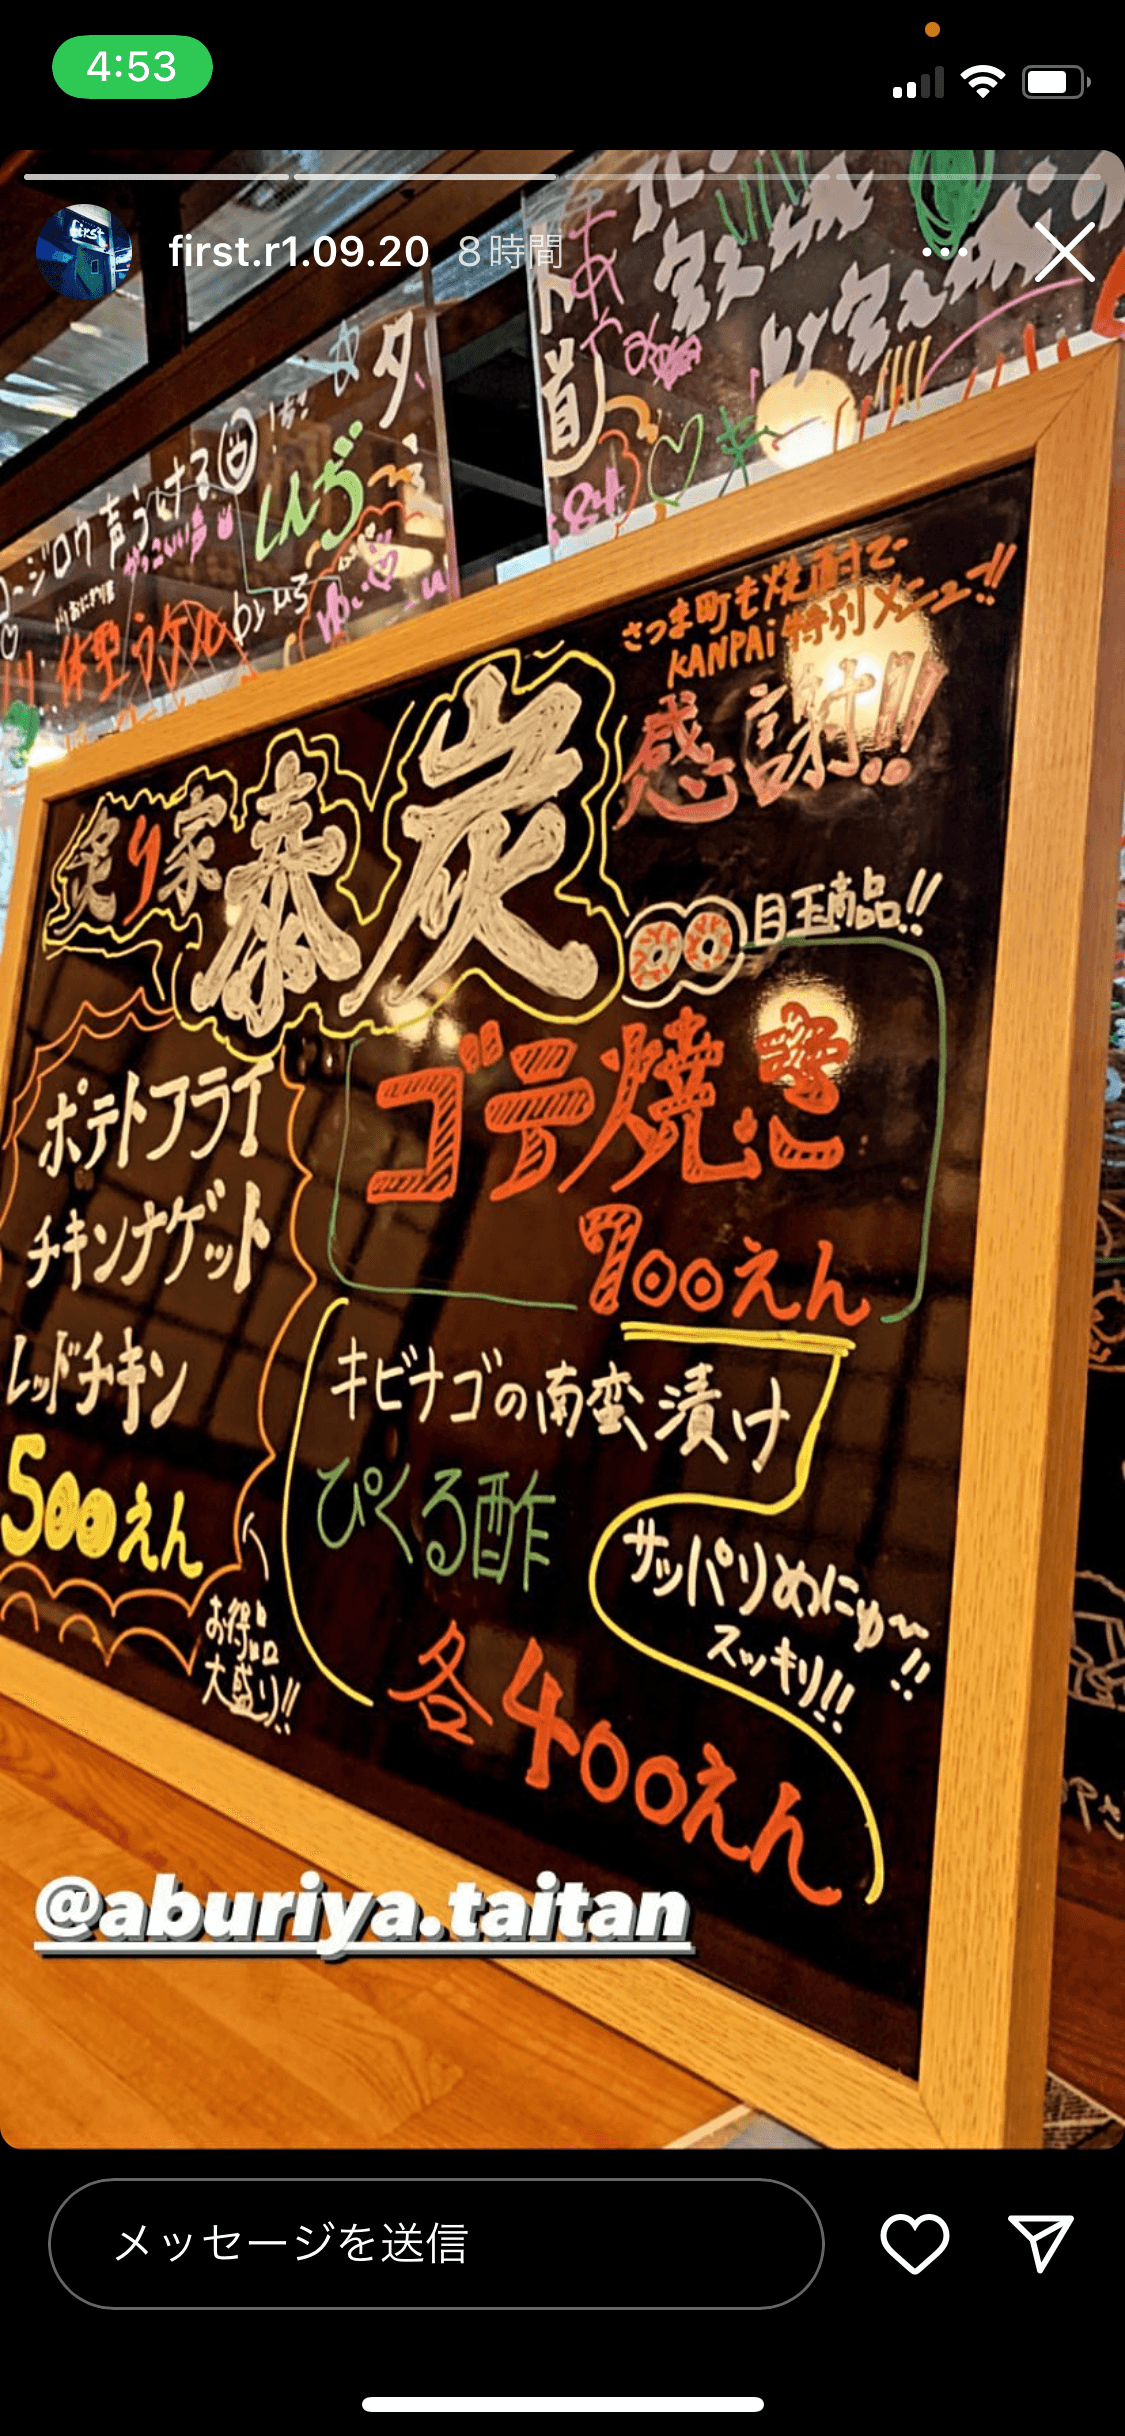 4:53
first.r1.09.20 8時間
ロージロウ声うける
かっこいい声
体型うケル
byいろ
さつま町も焼酎で
KANPAi特別メニュー!!
感謝!!!
炙り家泰炭
目玉商品!!
ゴテ焼き
700えん
ポテトフライ
チキンナゲット
レッドチキン
500えん
お得品
大盛り!!
キビナゴの南蛮漬け
ぴくる酢
サッパリめにゅ〜!!
スッキリ!!
各400えん
@aburiya.taitan
メッセージを送信